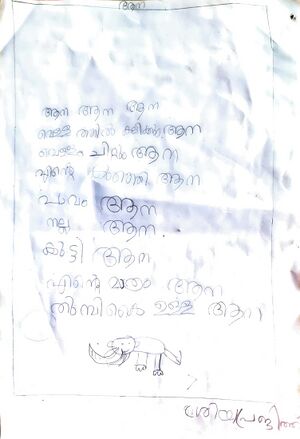 ആന
ആന ആന ആന
വെള്ളത്തിൽ കളിക്കും ആന
വെള്ളം ചീറ്റും ആന
ആന
പാവം ആന
നല്ല ആന
കുട്ടി ആന
എന്റെ മാത്രം ആന
തുമ്പികൈ ഉള്ള ആന